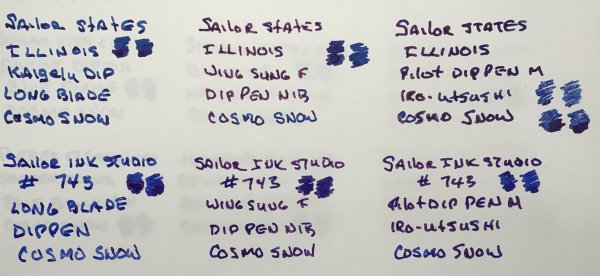 Sailor States
Illinois
Kaigelu Dip
Long Blade
Cosmo Snow
Sailor States
Illinois
Wing Sung F
Dip Pen Nib
Cosmo Snow
Sailor States
Illinois
Pilot Dip Pen M
Iro-utsushi
Cosmo Snow
Sailor Ink Studio
# 743
Long Blade
Dippen
Cosmo Snow
Sailor Ink Studio
# 743
Wing Sung F
Dip Pen Nib
Cosmo Snow
Sailor Ink Studio
# 743
Pilot Dip Pen M
Iro-utsushi
Cosmo Snow